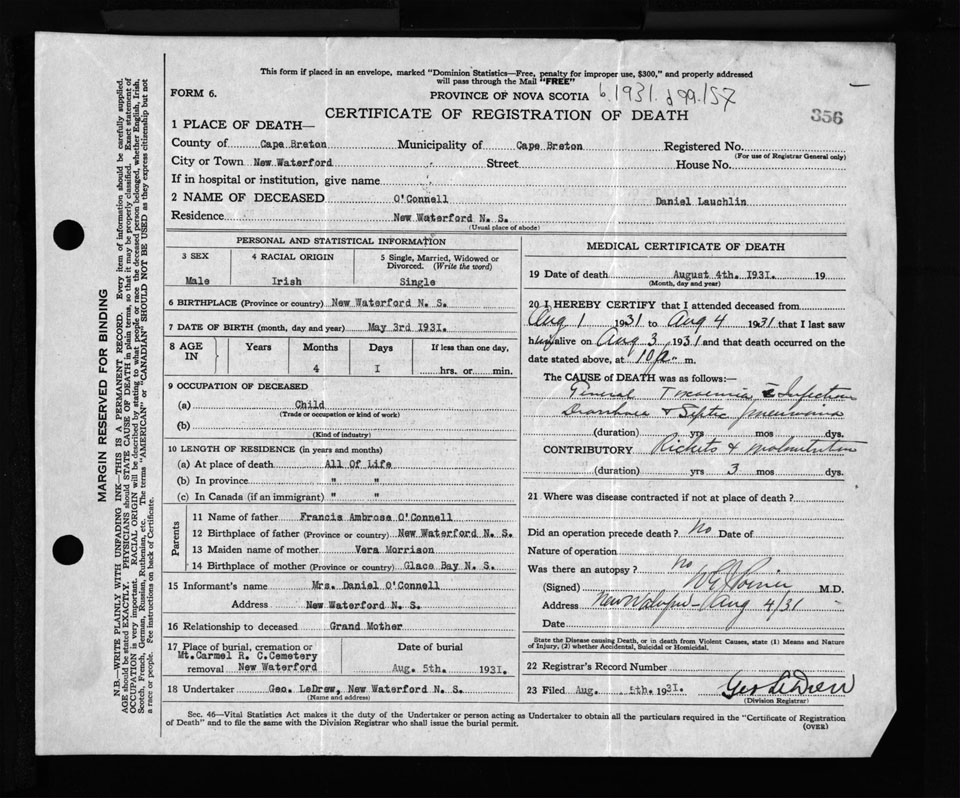 This form if placed in an envelope, marked "Dominion Statistics—Free, penalty for improper use, $300," and properly addressed
will pass through the Mail "FREE"
FORM 6.
PROVINCE OF NOVA SCOTIA
1931.
356
CERTIFICATE OF REGISTRATION OF DEATH
1 PLACE OF DEATH—
County of Cape Breton Municipality of Cape Breton Registered No.
(For use of Registrar General only)
City or Town New Waterford Street House No.
If in hospital or institution, give name
2 NAME OF DECEASED O'Connell Daniel Lauchlin
Residence New Waterford N. S.
(Usual place of abode)
PERSONAL AND STATISTICAL INFORMATION
3 SEX 4 RACIAL ORIGIN 5 Single, Married, Widowed or
Divorced. (Write the word)
Male Irish Single
6 BIRTHPLACE (Province or country) New Waterford N. S.
7 DATE OF BIRTH (month, day and year) May 3rd I931.
8 AGE IN Years Months Days If less than one day,
4 I hrs. or min.
9 OCCUPATION OF DECEASED
(a) Child
(Trade or occupation or kind of work)
(b)
(Kind of industry)
10 LENGTH OF RESIDENCE (in years and months)
(a) At place of death All Of Life
(b) In province " "
(c) In Canada (if an immigrant) " "
Parents
11 Name of father Francis Ambrose O'Connell
12 Birthplace of father (Province or country) New Waterford N. S.
13 Maiden name of mother Vera Morrison
14 Birthplace of mother (Province or country) Glace Bay N. S.
15 Informant's name Mrs. Daniel O'Connell
Address New Waterford N. S.
16 Relationship to deceased Grand Mother
17 Place of burial, cremation or Date of burial
Mt.Carmel R. C.Cemetery
removal New Waterford Aug. 5th. I931.
18 Undertaker Geo. LeDrew, New Waterford N. S.
(Name and address)
MEDICAL CERTIFICATE OF DEATH
19 Date of death August 4th. I931. 19
(Month, day and year)
20 I HEREBY CERTIFY that I attended deceased from
Aug 1 1931 to Aug 4 1931 that I last saw
him alive on Aug 3 1931 and that death occurred on the
date stated above, at 10 a. m.
The CAUSE of DEATH was as follows:—
General Toxaemia c̄ Infection
Diarrhoea & Septic pneumonia
(duration) yrs mos dys.
CONTRIBUTORY Rickets & Malnutrition
(duration) yrs 3 mos dys.
21 Where was disease contracted if not at place of death?
Did an operation precede death? No Date of
Nature of operation
Was there an autopsy? No
(Signed) M.D.
Address New Waterford — Aug 4/31
Date
State the Disease causing Death, or in death from Violent Causes, state (1) Means and Nature
of Injury, (2) whether Accidental, Suicidal or Homicidal.
22 Registrar's Record Number
23 Filed Aug. 5th. 1931. Geo LeDrew
(Division Registrar)
Sec. 46—Vital Statistics Act makes it the duty of the Undertaker or person acting as Undertaker to obtain all the particulars required in the "Certificate of Registration
of Death" and to file the same with the Division Registrar who shall issue the burial permit.
(OVER)
MARGIN RESERVED FOR BINDING
N.B.—WRITE PLAINLY WITH UNFADING INK—THIS IS A PERMANENT RECORD. Every item of information should be carefully supplied.
AGE should be stated EXACTLY. PHYSICIANS should STATE CAUSE OF DEATH in plain terms, so that it may be properly classified. Exact statement of
OCCUPATION is very important. RACIAL ORIGIN will be described by stating to what people or race the deceased person belonged, whether English, Irish,
Scotch, French, German, Russian, Ruthenian, etc. The terms "AMERICAN" or "CANADIAN" SHOULD NOT BE USED as they express citizenship but not
a race or people. See instructions on back of Certificate.